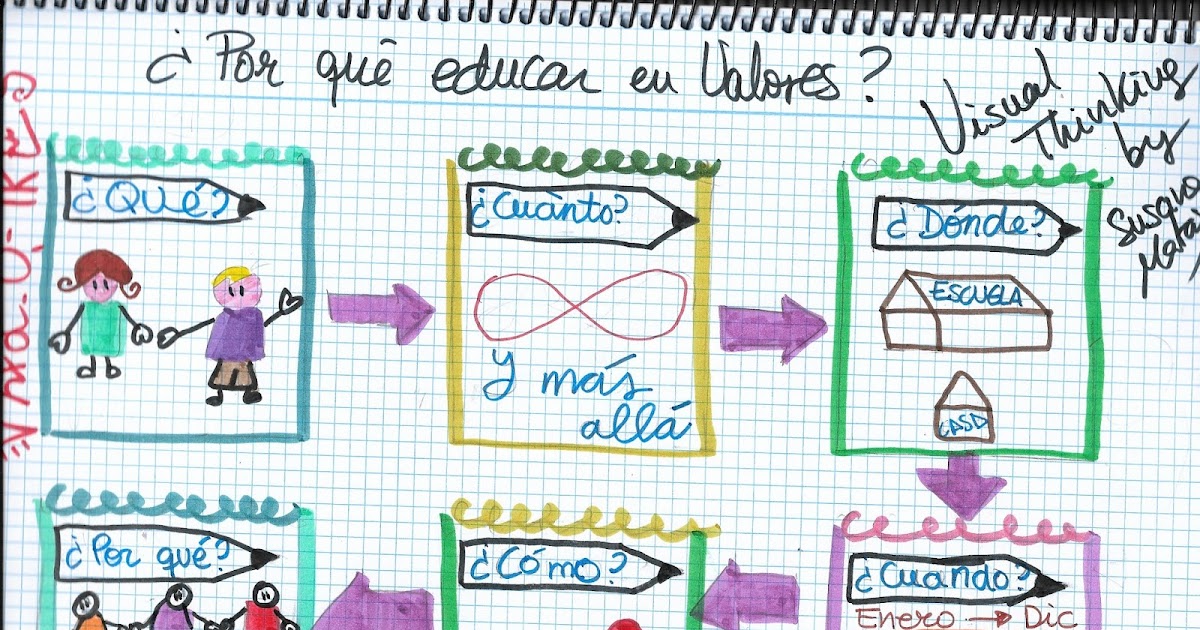 ¿Por quē educar en Valores?
Visual
Thinking
by
¿Qué?
¿Cuànto?
Y más
allá
¿Dónde?
ESCUELA
CASA
¿Por qué?
¿Cómo?
¿Cuando?
Enero → Dic